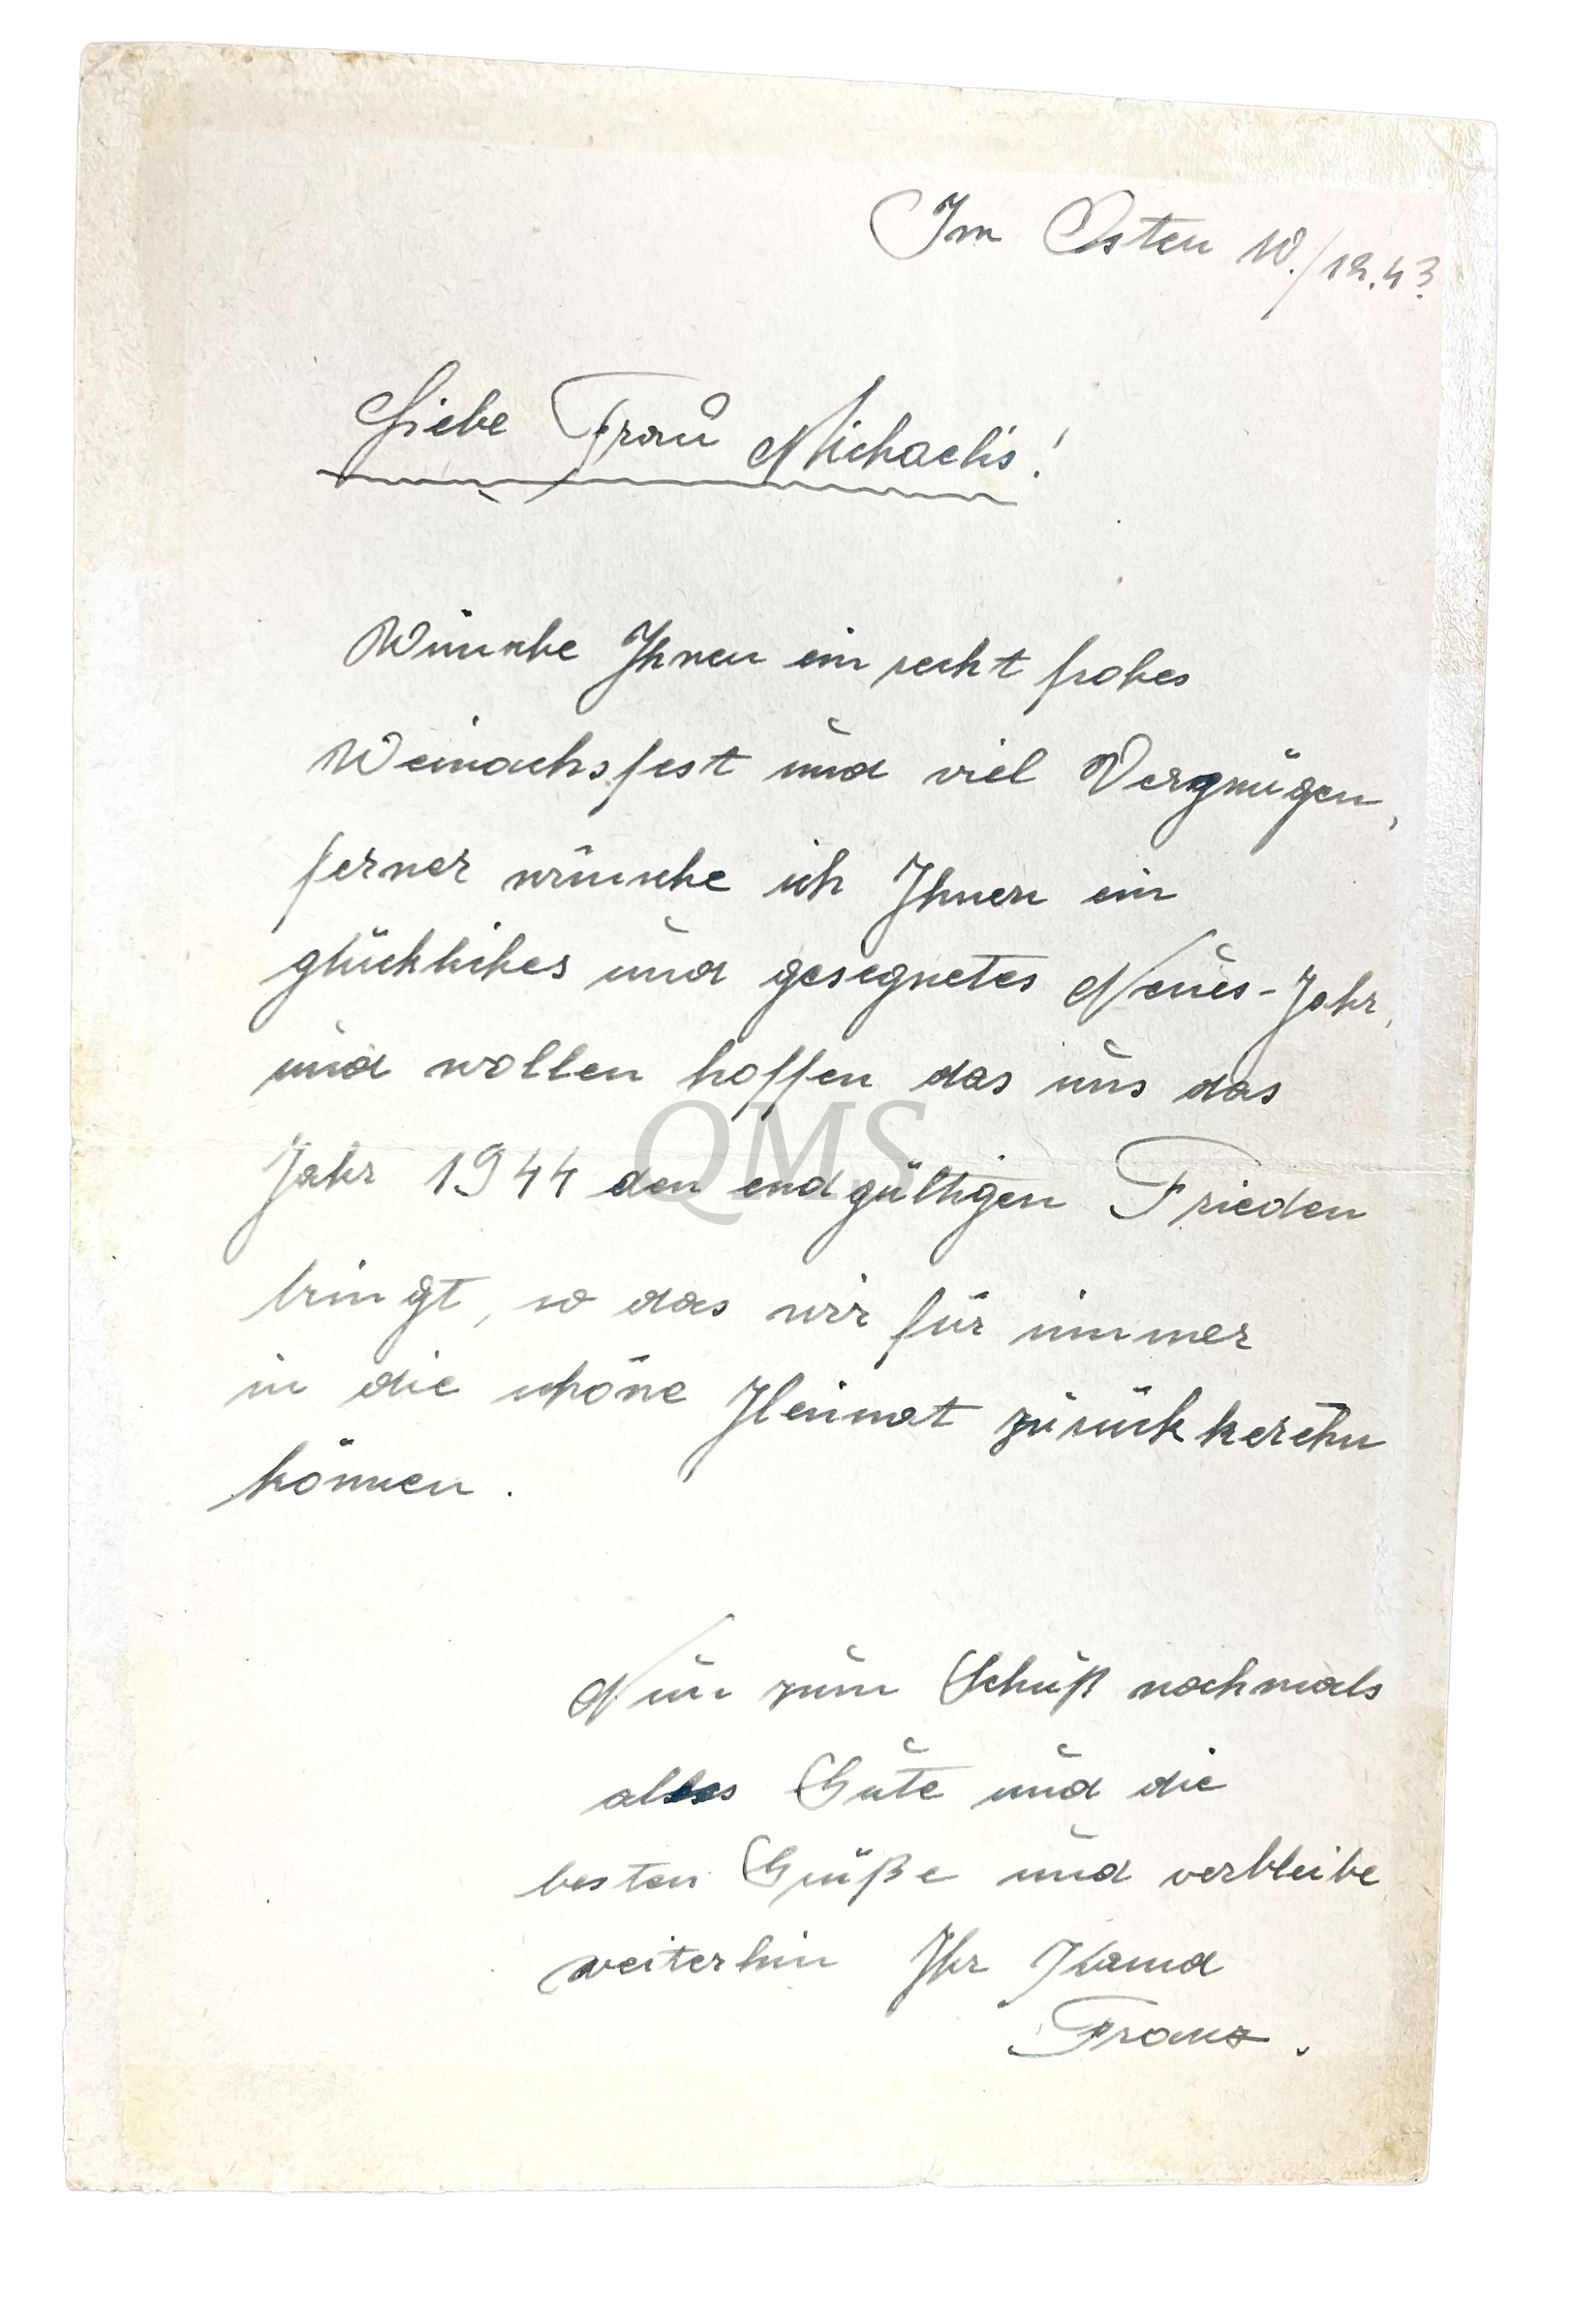 Im Osten 10./12.43
Liebe Frau Michaelis!
Wünsche Ihnen ein recht frohes
Weinachsfest und viel Vergnügen,
ferner wünsche ich Ihnen ein
glückliches und gesegnetes Neues-Jahr,
und wollen hoffen das uns das
Jahr 1944 den endgültigen Frieden
QMS
bringt, so das wir für immer
in die schöne Heimat zurückkerehn
können.
Nun zum Schluß nochmals
alles Gute und die
besten Grüße und verbleibe
weiterhin Ihr
Franz.